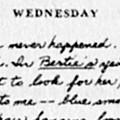 WEDNESDAY
never happened.
In Bertie's yea
t to look for her,
to me -- blue, smo